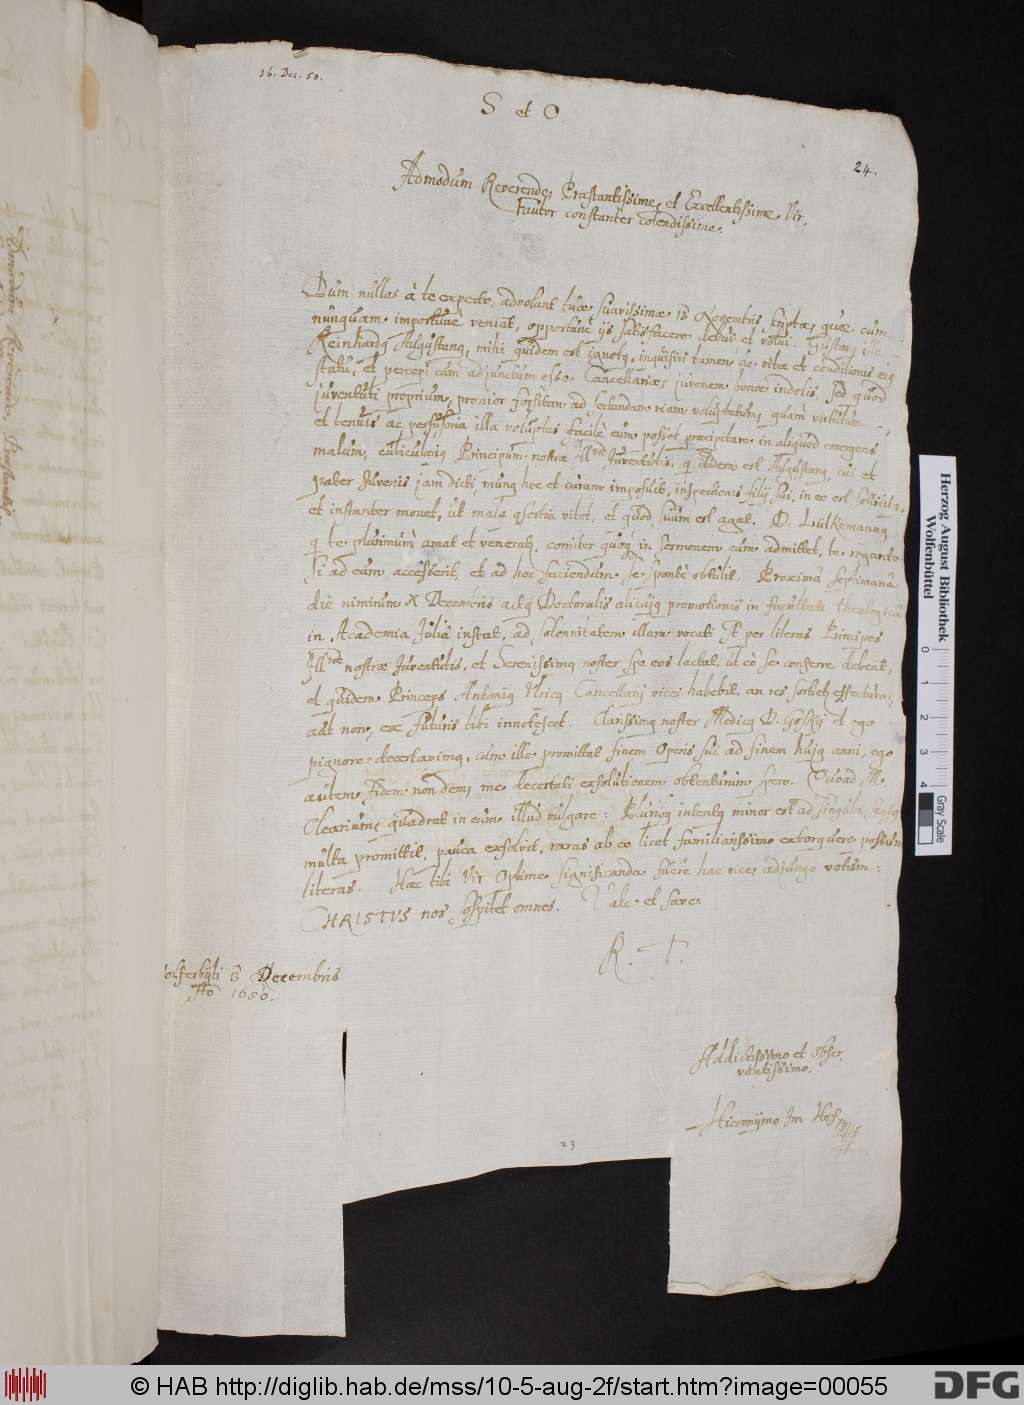 16. Dec. 50.
S et O.
24.
Admodum Reverende, Præstantissime, et Excellentissime Vir.
Fautor constanter colendissime.
Dum nullas à te expecto, advolant tuæ suavissimæ 13 Novembris scriptæ, quæ cum
nunquam importunè veniat, opportunè ijs satisfacere debui et volui. Gustavq ille
Reinhardq Augustanq, mihi quidem est ignotq, inquisivi tamen de vitæ et conditionis eiq
statu, et percepi eum adjunctum esse Cancellariæ, juvenem bonæ indolis, sed quod
juventuti proprium, pronior forsitan ad sectandam viam voluptatum, quàm virtutum
et tenuis ac perfusoria illa voluptas facilè eum possit præcipitare in aliquod emergens
malum, cubiculariq Principum nostræ Ill.mæ Juventutis, q itidem est Augustanq, cui et
pater Juvenis jam dicti, munq hoc et curam imposuit, inspectionis filij sui, in eo est sollicitq,
et instanter monet, ut mala qsortia vitet, et quod suum est agat. D. Lutkemannq
q te plurimum amat et veneratur, comiter quoq in sermonem eum admittet, te regardo
si ad eum accesserit, et ad hoc faciendum se spontè obtulit. Proximâ septimanâ
die nimirum X Decembris actq Doctoralis alicujq promotionis in facultate theologicâ
in Academia Julia instat, ad solennitatem illam vocati st per literas Principes
Ill.mæ nostræ Juventutis, et Serenissimq noster spe eos lactat, ut eò se conferre debeat,
et quidem Princeps Antoniq Ulricq Cancellarij vices habebit. an res sortietur effectum,
aut non, ex futuris tibi innotescet. Clarissimq noster Medicq D. Gosky et ego
pignore decertavimq, cum ille promittat finem Operis sui ad finem hujq anni, ego
autem fidem non dem, me decertati exsolutionem obtenturum spero. Quoad M.
Olearium, quadrat in eum illud vulgare: Pluribq intentq minor est ad singula sensq
multa promittit, pauca exsolvit, raras ab eo licet familiarissimo extorquere possum
literas. Hæc tibi Vir Optime significanda fuere hac vice, adjungo votum:
CHRISTVS nos sospitet omnes. Vale et fave.
R. T.
olferbyti 3 Decembris
Ao 1650.
Addictissimo et obser-
vantissimo.
Hieronymo Im Hof
23
Herzog August Bibliothek
Wolfenbüttel
0 1 2 3 4
Gray Scale
© HAB http://diglib.hab.de/mss/10-5-aug-2f/start.htm?image=00055
DFG